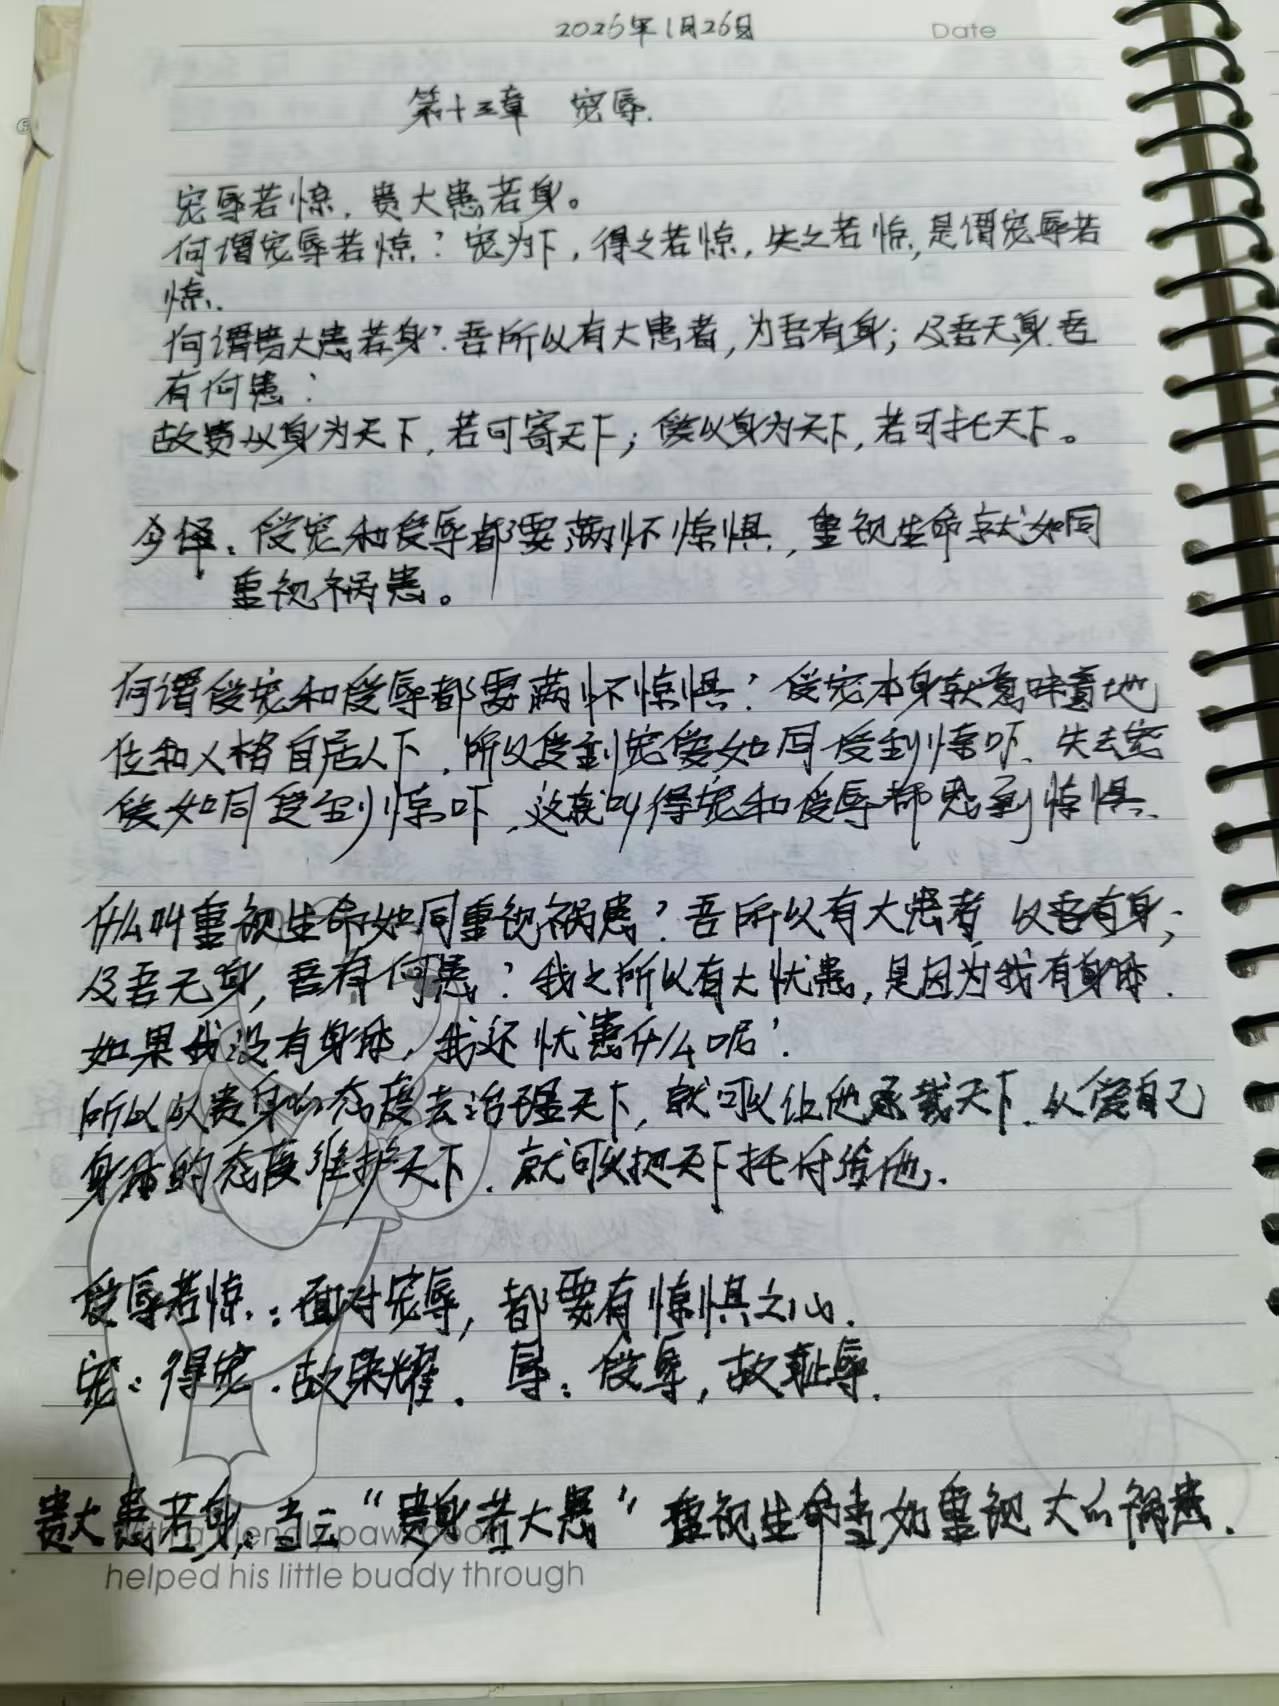 2025年1月26日
Date
第十三章 宠辱.
宠辱若惊，贵大患若身。
何谓宠辱若惊？宠为下，得之若惊，失之若惊，是谓宠辱若
惊.
何谓贵大患若身？吾所以有大患者，为吾有身；及吾无身.吾
有何患？
故贵以身为天下，若可寄天下；爱以身为天下，若可托天下。
今译：受宠和受辱都要满怀惊惧，重视生命就如同
重视祸患。
何谓受宠和受辱都要满怀惊惧？受宠本身就意味着地
位和人格自居人下，所以受到宠爱如同受到惊吓、失去宠
爱如同受到惊吓，这就叫得宠和受辱都感到惊惧.
什么叫重视生命如同重视祸患？吾所以有大患者 以吾有身；
及吾无身，吾有何患？我之所以有大忧患，是因为我有身体.
如果我没有身体，我还忧患什么呢？
所以以贵身的态度去治理天下，就可以让他承载天下.以爱自己
身体的态度维护天下.就可以把天下托付给他.
受辱若惊：面对宠辱，都要有惊惧之心.
宠：得宠.故荣耀. 辱：受辱，故耻辱.
贵大患若身，当云“贵身若大患”重视生命当如重视大的祸患.
with a friendly paw
helped his little buddy through